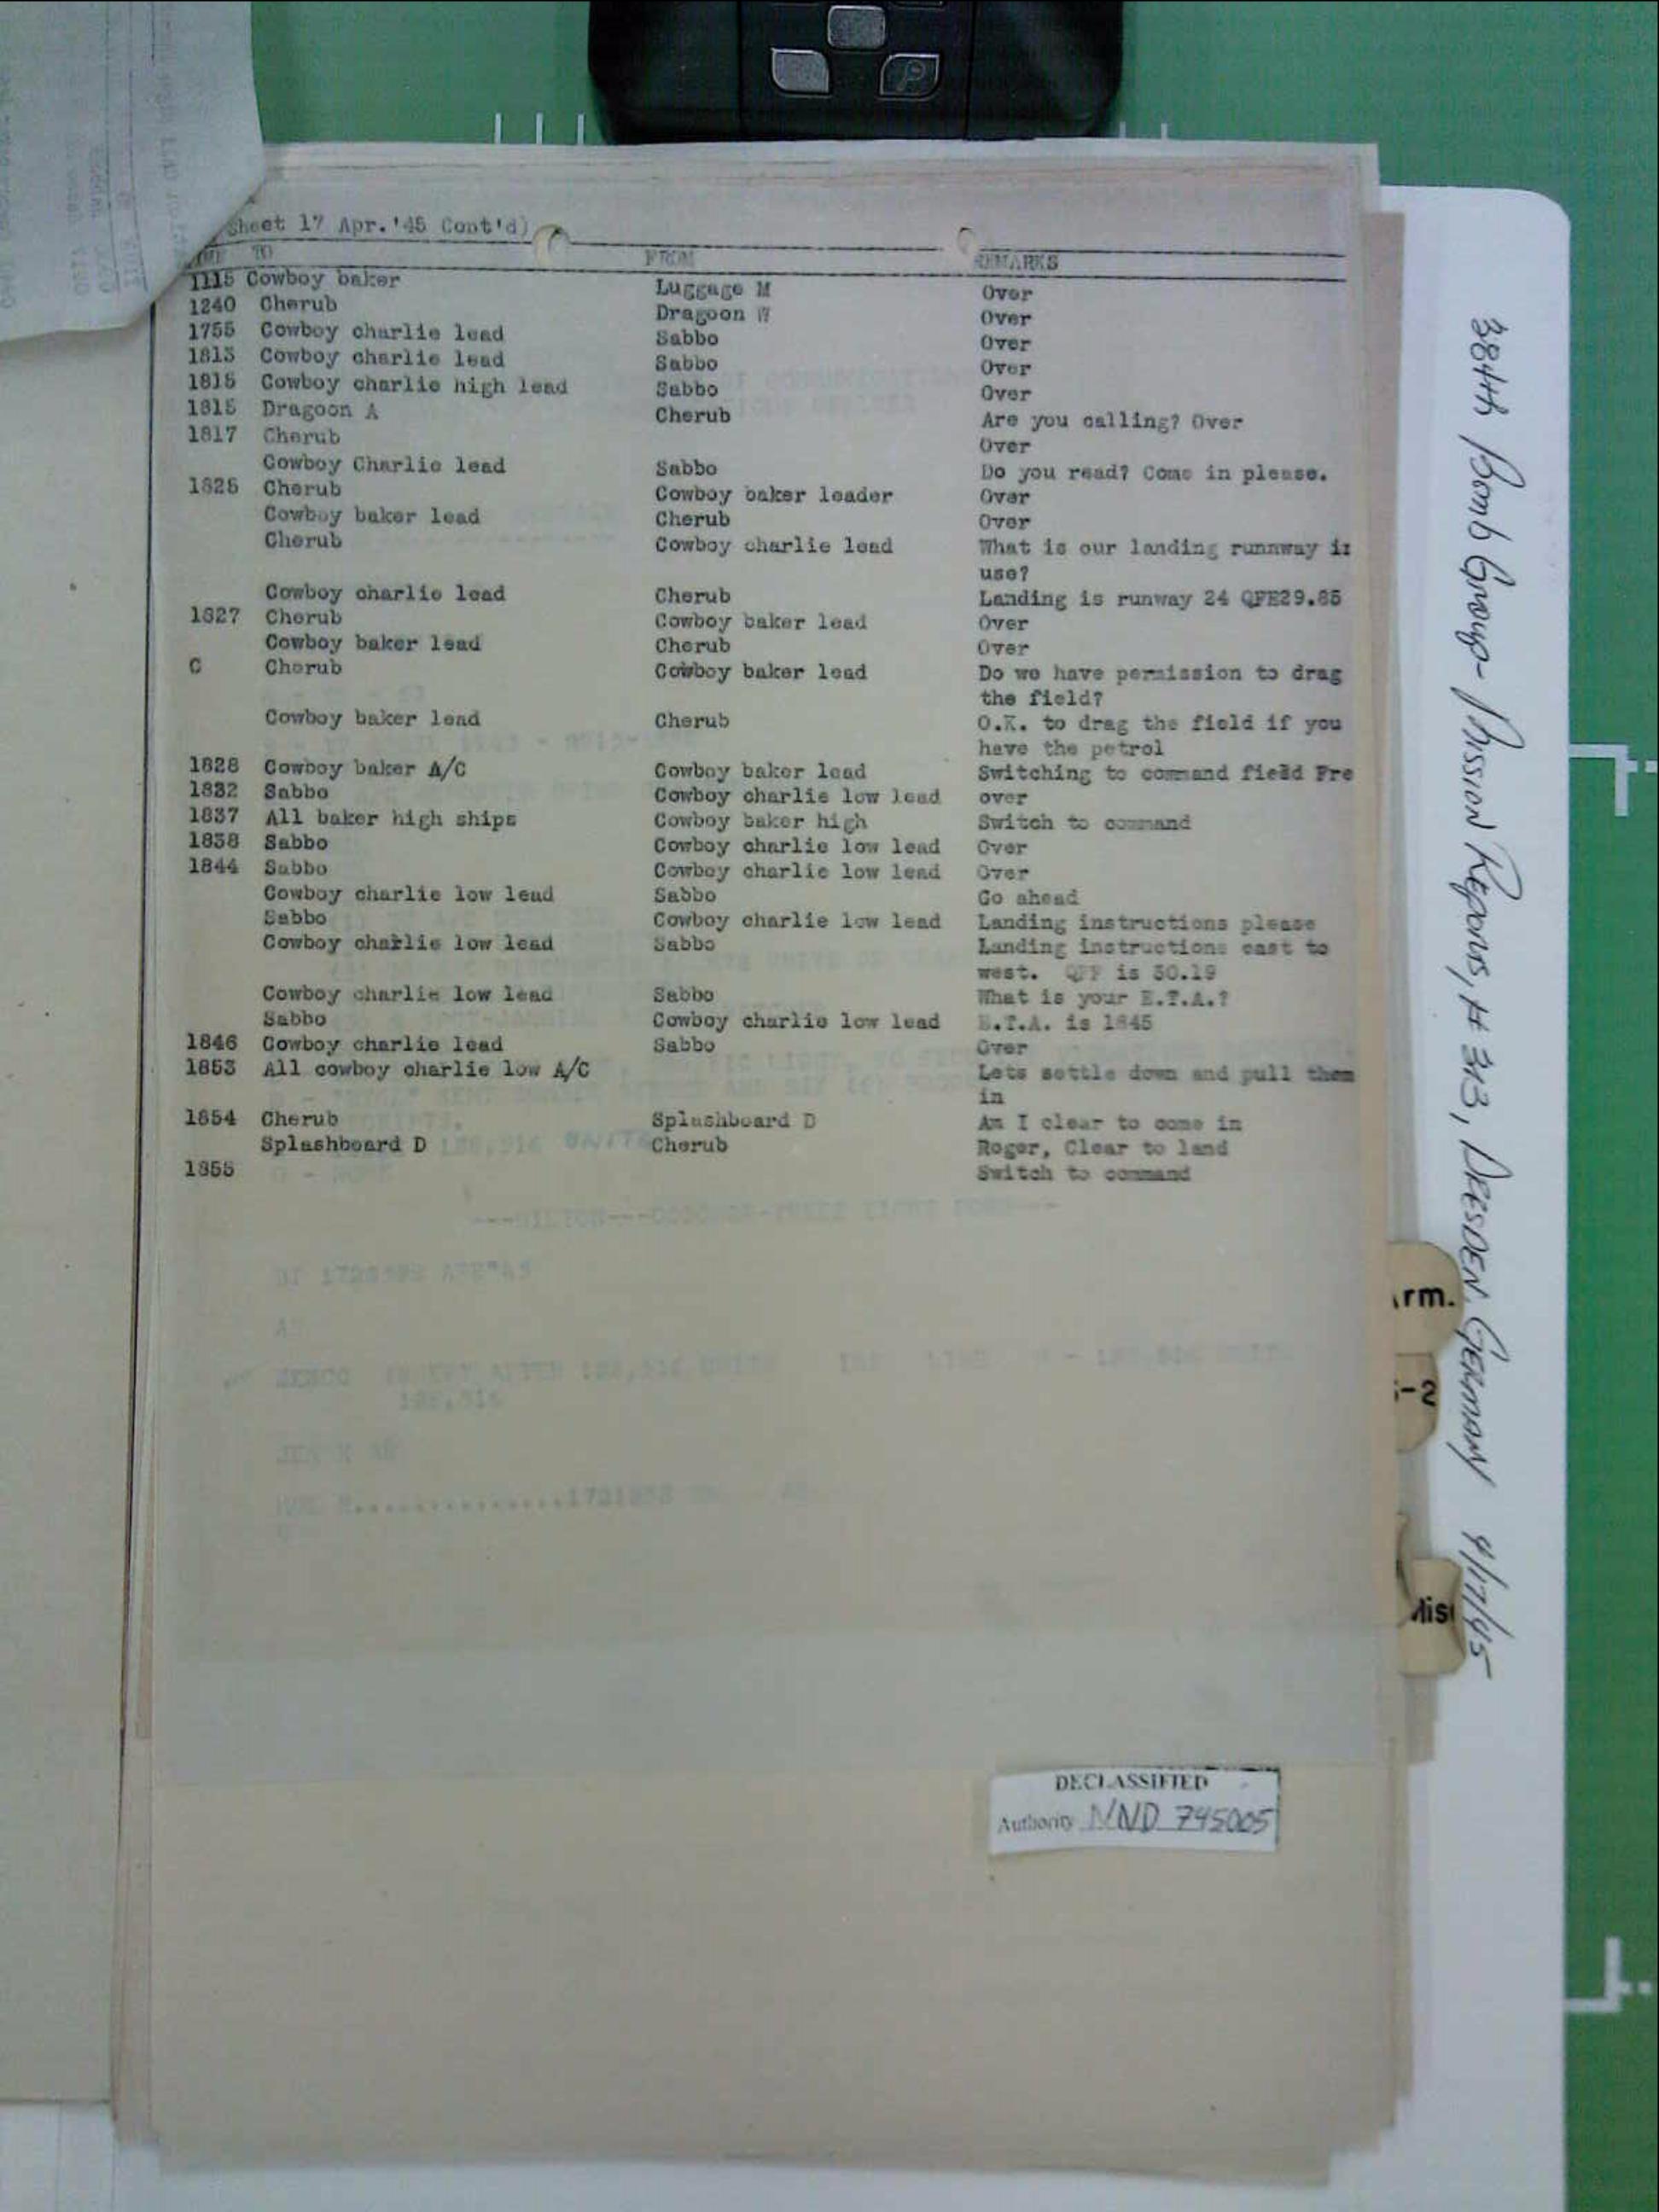 Sheet 17 Apr.'45 Cont'd)
TO FROM REMARKS
1115 Cowboy baker Luggage M Over
1240 Cherub Dragoon W Over
1755 Cowboy charlie lead Sabbo Over
1813 Cowboy charlie lead Sabbo Over
1815 Cowboy charlie high lead Sabbo Over
1815 Dragoon A Cherub Are you calling? Over
1817 Cherub Over
Cowboy Charlie lead Sabbo Do you read? Come in please.
1825 Cherub Cowboy baker leader Over
Cowboy baker lead Cherub Over
Cherub Cowboy charlie lead What is our landing runnway in
use?
Cowboy charlie lead Cherub Landing is runway 24 QFE29.85
1827 Cherub Cowboy baker lead Over
Cowboy baker lead Cherub Over
C Cherub Cowboy baker lead Do we have permission to drag
the field?
Cowboy baker lead Cherub O.K. to drag the field if you
have the petrol
1828 Cowboy baker A/C Cowboy baker lead Switching to command field Fre
1832 Sabbo Cowboy charlie low lead over
1837 All baker high ships Cowboy baker high Switch to command
1838 Sabbo Cowboy charlie low lead Over
1844 Sabbo Cowboy charlie low lead Over
Cowboy charlie low lead Sabbo Go ahead
Sabbo Cowboy charlie low lead Landing instructions please
Cowboy charlie low lead Sabbo Landing instructions east to
west. QFF is 30.19
Cowboy charlie low lead Sabbo What is your E.T.A.?
Sabbo Cowboy charlie low lead E.T.A. is 1845
1846 Cowboy charlie lead Sabbo Over
1853 All cowboy charlie low A/C Lets settle down and pull them
in
1854 Cherub Splashboard D Am I clear to come in
Splashboard D Cherub Roger, Clear to land
1855 Switch to command
DECLASSIFIED
Authority NND 745005
384th Bomb Group - Mission Reports, # 313, Dresden, Germany 4/17/45
rm.
-2
Mis